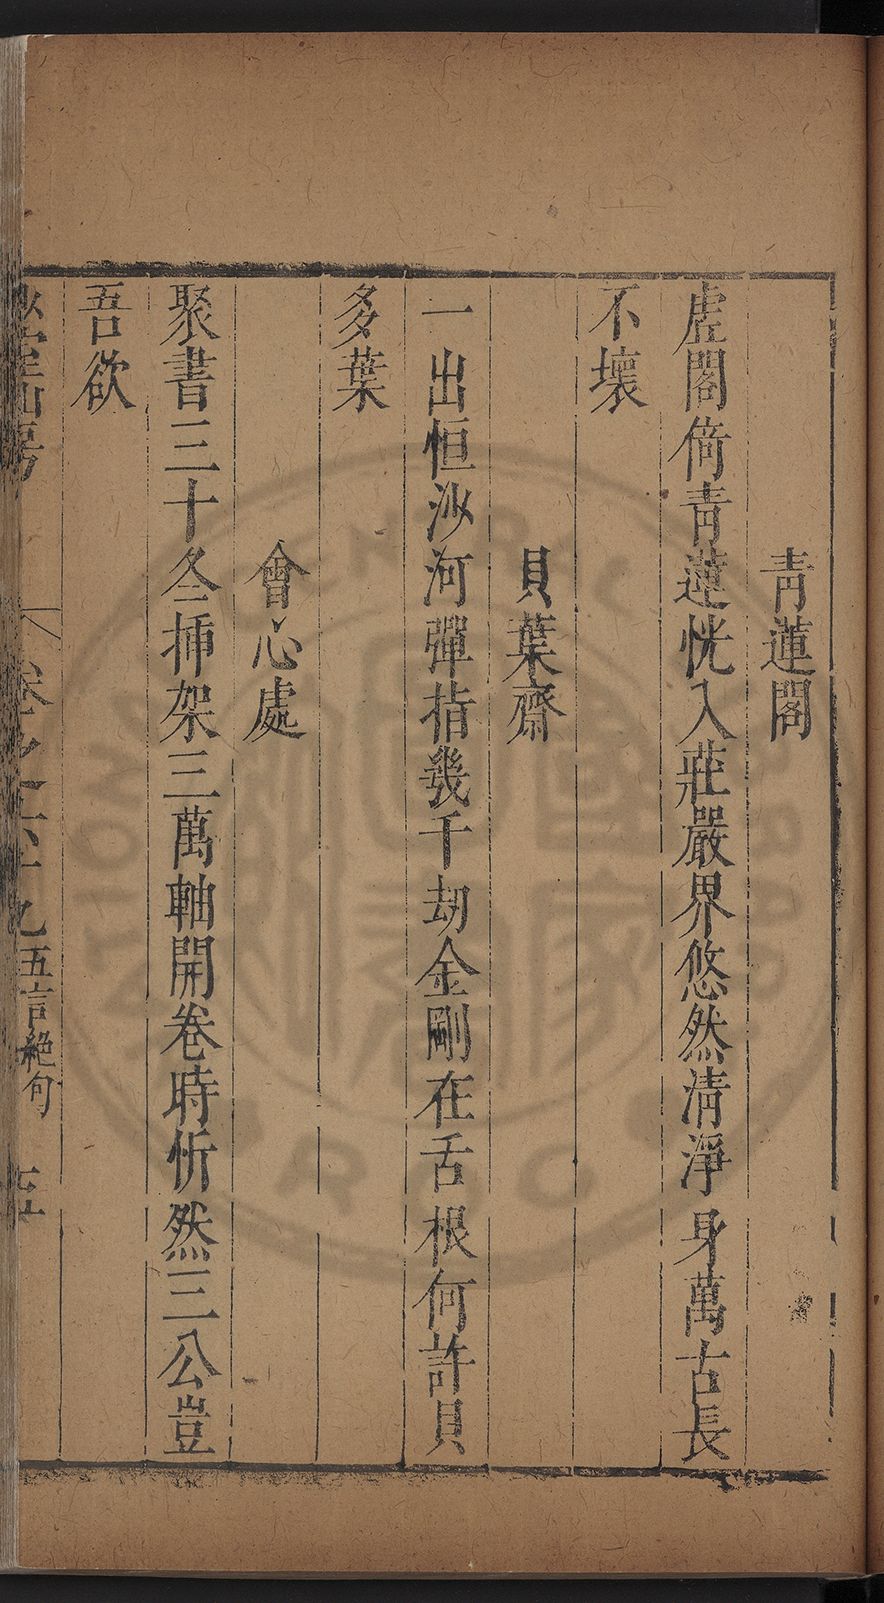 青蓮閣
虛閣倚青蓮恍入莊嚴界悠然清淨身萬古長
不壞
貝葉齋
一出恒沙河彈指幾千劫金剛在舌根何許貝
多葉
會心處
聚書三十冬揷架三萬軸開卷時忻然三公豈
吾欲
山房 卷之六十九 五言絕句